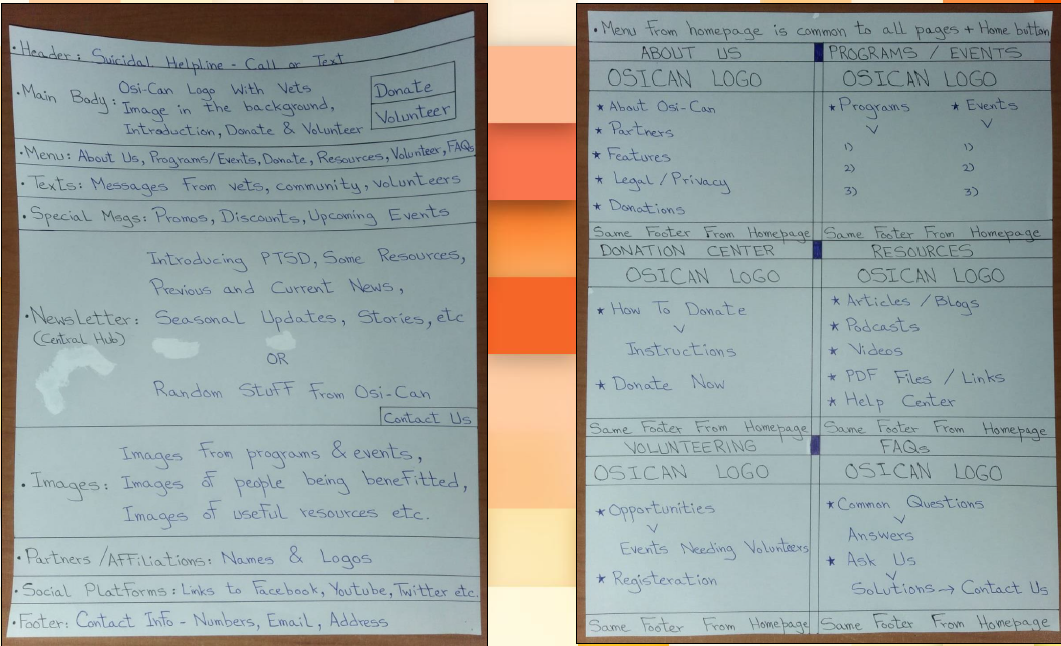 • Header: Suicidal Helpline - Call or Text
• Main Body: Osi-Can Logo With Vets
Image in the background,
Introduction, Donate & Volunteer
Donate
Volunteer
• Menu: About Us, Programs/Events, Donate, Resources, Volunteer, FAQs
• Texts: Messages From vets, community, volunteers
• Special Msgs: Promos, Discounts, Upcoming Events
Introducing PTSD, Some Resources,
Previous and Current News,
• Newsletter: Seasonal Updates, Stories, etc
(Central Hub)
OR
Random Stuff From Osi-Can
Contact Us
Images From programs & events,
• Images: Images of people being benefitted,
Images of useful resources etc.
• Partners / Affiliations: Names & Logos
• Social Platforms: Links to Facebook, Youtube, Twitter etc.
• Footer: Contact Info - Numbers, Email, Address
• Menu From homepage is common to all pages + Home button
ABOUT US
OSICAN LOGO
★ About Osi-Can
★ Partners
★ Features
★ Legal / Privacy
★ Donations
Same Footer From Homepage
PROGRAMS / EVENTS
OSICAN LOGO
★ Programs ★ Events
1) 1)
2) 2)
3) 3)
Same Footer From Homepage
DONATION CENTER
OSICAN LOGO
★ How To Donate
Instructions
★ Donate Now
Same Footer From Homepage
RESOURCES
OSICAN LOGO
★ Articles / Blogs
★ Podcasts
★ Videos
★ PDF Files / Links
★ Help Center
Same Footer From Homepage
VOLUNTEERING
OSICAN LOGO
★ Opportunities
Events Needing Volunteers
★ Registeration
Same Footer From Homepage
FAQs
OSICAN LOGO
★ Common Questions
Answers
★ Ask Us
Solutions → Contact Us
Same Footer From Homepage